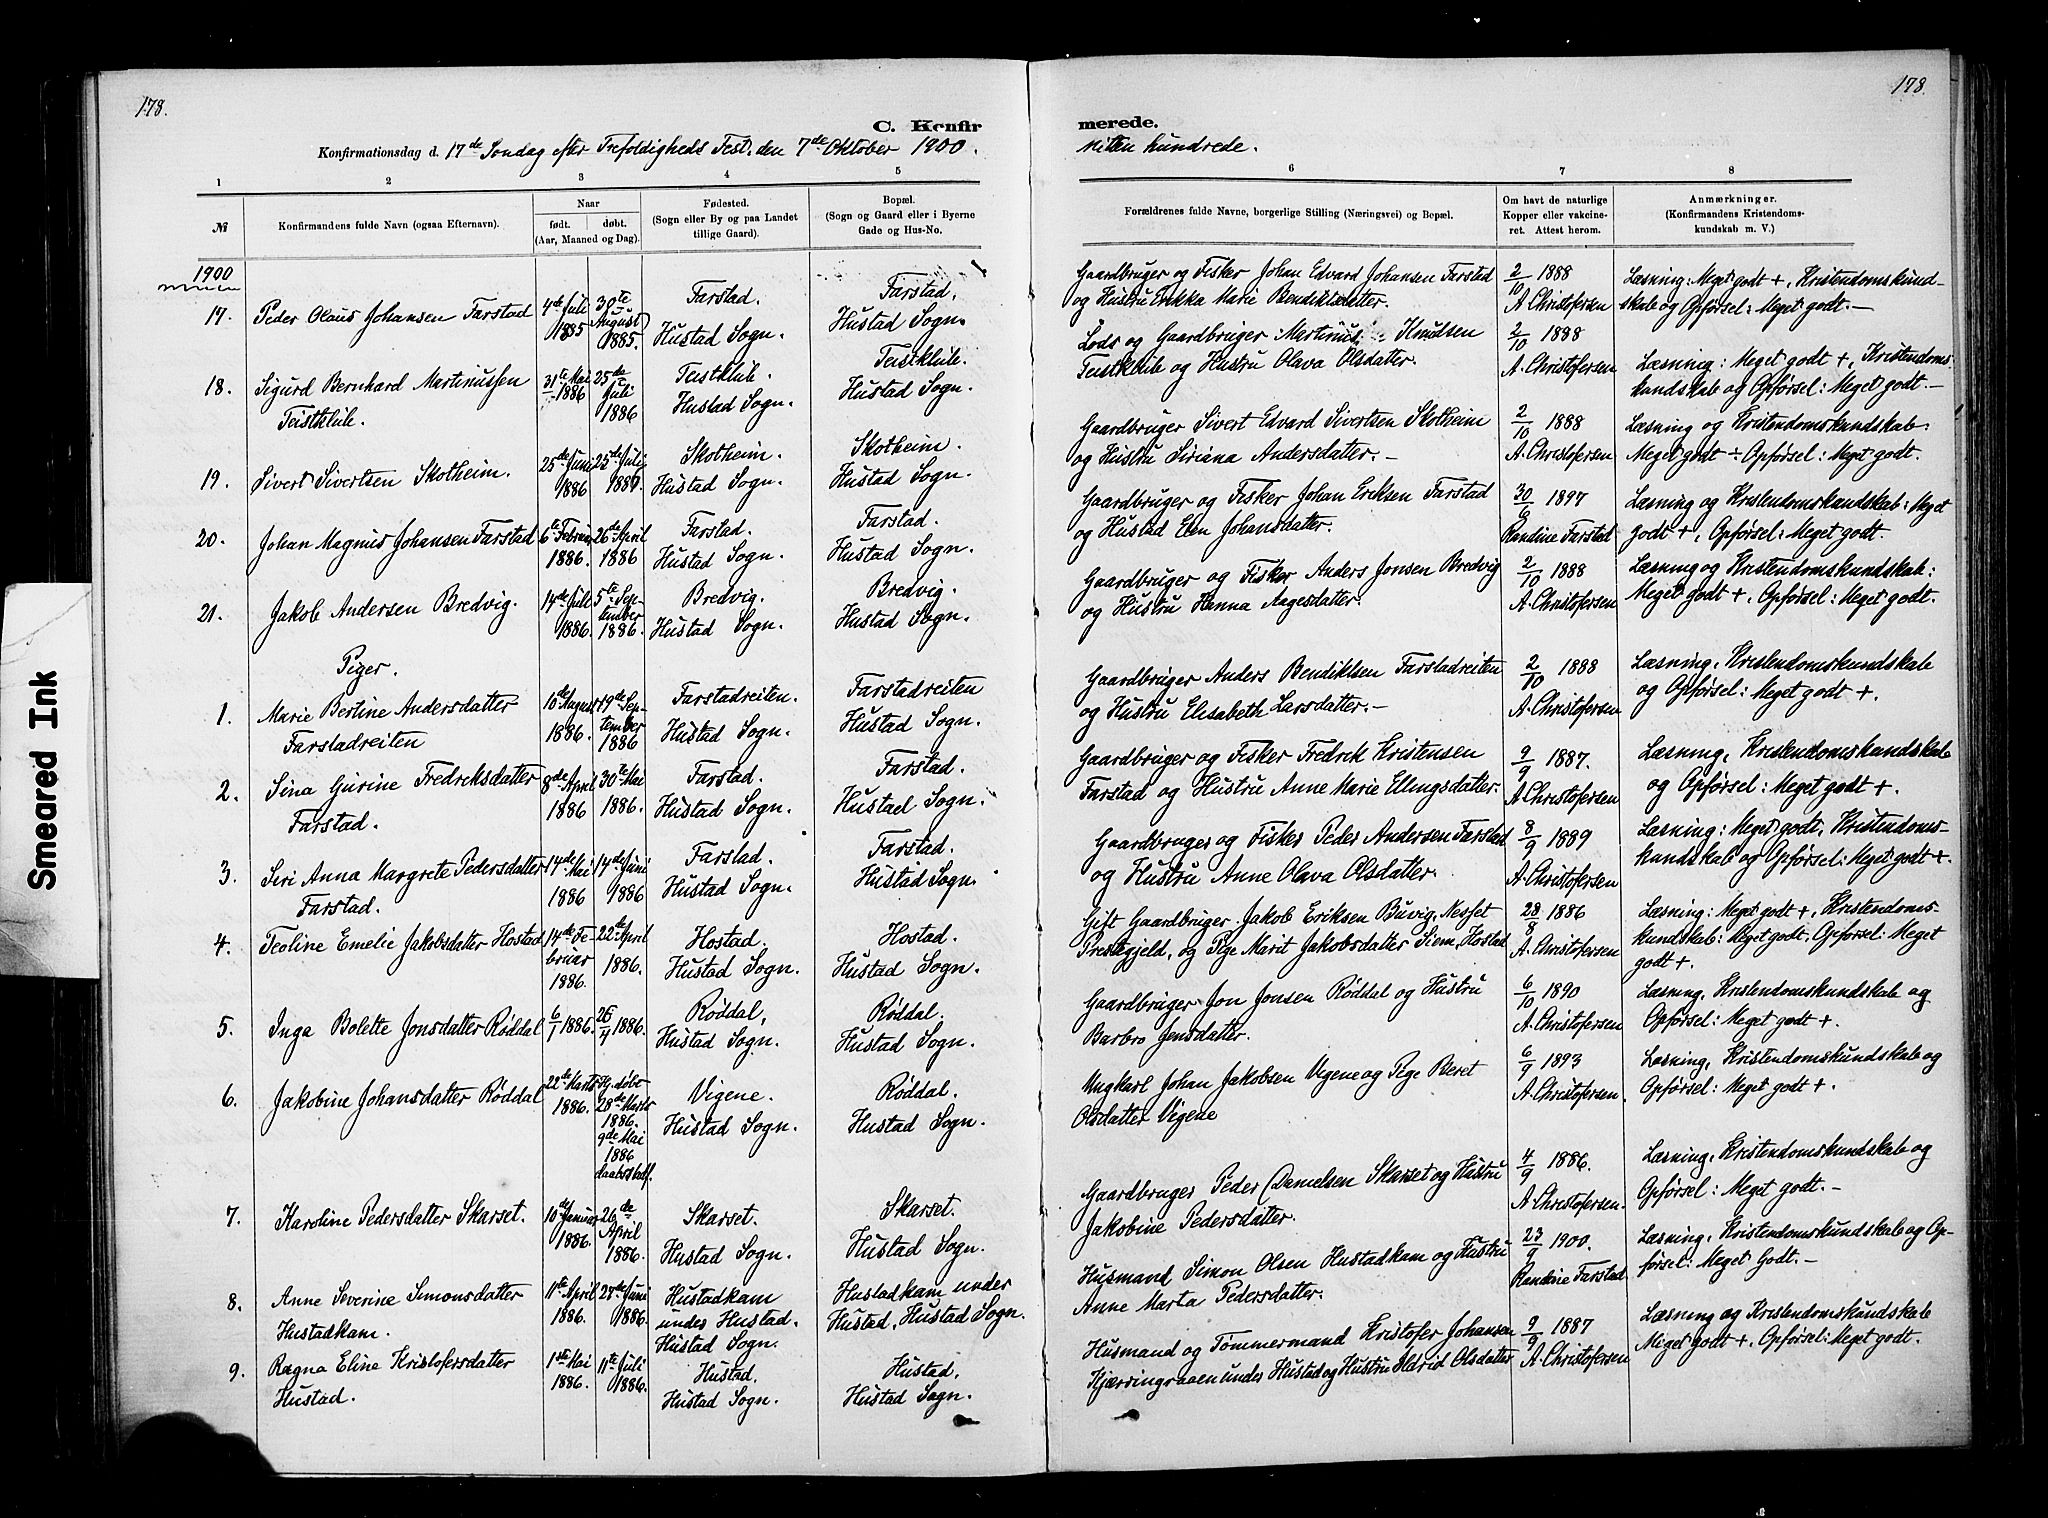 178.
178.
C. Konfir
merede.
Konfirmationsdag d. 17de Søndag efter Trefoldigheds Fest, den 7de Oktober 1900.
nitten hundrede.
1 2 3 4 5 6 7 8
№
Konfirmandens fulde Navn (ogsaa Efternavn).
Naar
født. døbt.
(Aar, Maaned og Dag).
Fødested.
(Sogn eller By og paa Landet
tillige Gaard).
Bopæl.
(Sogn og Gaard eller i Byerne
Gade og Hus-No.
Forældrenes fulde Navne, borgerlige Stilling (Næringsvei) og Bopæl.
Om havt de naturlige
Kopper eller vakcine-
ret. Attest herom.
Anmærkninger.
(Konfirmandens Kristendoms-
kundskab m. V.)
1900
17. Peder Olaus Johansen Farstad
4de Juli 1885
30te August 1885.
Farstad.
Hustad Sogn.
Farstad,
Hustad Sogn.
Gaardbruger og Fisker Johan Edvard Johansen Farstad
og Hustru Erikka Marie Bendiktsdatter.
2/10 1888
A. Christofersen
Læsning: Meget godt +, Kristendomskund-
skab og Opførsel: Meget godt. —
18. Sigurd Bernhard Martinussen
Teistklub.
31te Mai 1886
25de Juli 1886
Teistklub.
Hustad Sogn.
Teistklub.
Hustad Sogn.
Lods og Gaardbruger Martinus Knudsen
Teistklub og Hustru Olava Olsdatter.
2/10 1888
A. Christofersen
Læsning: Meget godt +, Kristendoms-
kundskab og Opførsel: Meget godt. —
19. Sivert Sivertsen Skotheim.
25de Juni 1886
25de Juli 1886
Skotheim.
Hustad Sogn.
Skotheim.
Hustad Sogn.
Gaardbruger Sivert Edvard Sivertsen Skotheim
og Hustru Siriana Andersdatter. —
2/10 1888
A. Christofersen
Læsning og Kristendomskundskab:
Meget godt + Opførsel: Meget godt.
20. Johan Magnus Johansen Farstad
6te Februar 1886.
26de April 1886
Farstad.
Hustad Sogn.
Farstad.
Hustad Sogn.
Gaardbruger og Fisker Johan Eriksen Farstad
og Hustad Elen Johansdatter.
30/6 1897
Randine Farstad
Læsning og Kristendomskundskab: Meget
godt +, Opførsel: Meget godt.
21. Jakob Andersen Bredvig.
14de Juli 1886.
5te September 1886.
Bredvig.
Hustad Sogn.
Bredvig.
Hustad Sogn.
Gaardbruger og Fisker Anders Jonsen Bredvig
og Hustru Hanna Aagesdatter.
2/10 1888
A. Christofersen
Læsning og Kristendomskundskab:
Meget godt +, Opførsel: Meget godt.
Piger.
1. Marie Bertine Andersdatter
Farstadreiten
10de August 1886.
19de September 1886
Farstadreiten.
Hustad Sogn.
Farstadreiten
Hustad Sogn.
Gaardbruger Anders Bendiktsen Farstadreiten
og Hustru Elisabeth Larsdatter. —
2/10 1888
A. Christofersen
Læsning, Kristendomskundskab
og Opførsel: Meget godt +.
2. Sina Gurine Fredriksdatter
Farstad.
8de April 1886
30te Mai 1886.
Farstad.
Hustad Sogn.
Farstad.
Hustad Sogn.
Gaardbruger og Fisker Fredrik Kristensen
Farstad og Hustru Anne Marie Ellingsdatter.
9/9 1887.
A. Christofersen
Læsning, Kristendomskundskab
og Opførsel: Meget godt +.
3. Seri Anna Margrete Pedersdatter
Farstad.
14de Mai 1886
14de Juni 1886
Farstad.
Hustad Sogn.
Farstad.
Hustad Sogn.
Gaardbruger og Fisker Peder Andersen Farstad
og Hustru Anne Olava Olsdatter.
8/9 1889
A. Christofersen
Læsning: Meget godt, Kristendoms-
kundskab og Opførsel: Meget godt +.
4. Teoline Emelie Jakobsdatter Hostad
14de Februar 1886.
22de April 1886.
Hostad.
Hustad Sogn.
Hostad.
Hustad Sogn.
Gift Gaardbruger Jakob Eriksen Buvig, Nesset
Prestegjeld, og Pige Marit Jakobsdatter Siem, Hostad
28/8 1886
A. Christofersen
Læsning: Meget godt +, Kristendoms-
kundskab: Meget godt, Opførsel: Meget
godt +.
5. Inga Bolette Jonsdatter Røddal
6/1 1886.
26/4 1886.
Røddal,
Hustad Sogn.
Røddal.
Hustad Sogn.
Gaardbruger Jon Jonsen Røddal og Hustru
Barbro Jensdatter.
6/10 1890
A. Christofersen
Læsning, Kristendomskundskab og
Opførsel: Meget godt +.
6. Jakobine Johansdatter Røddal
22de Marts 1886.
Hj. døbt 28de Marts 1886. 9de Mai 1886 daabsstadf.
Vigene.
Hustad Sogn.
Røddal.
Hustad Sogn.
Ungkarl Johan Jakobsen Vigene og Pige Beret
Olsdatter Vigene
6/9 1893
A. Christofersen.
Læsning, Kristendomskundskab og
Opførsel: Meget godt +.
7. Karoline Pedersdatter Skarset.
10de Januar 1886.
26de April 1886.
Skarset.
Hustad Sogn.
Skarset.
Hustad Sogn.
Gaardbruger Peder Danielsen Skarset og Hustru
Jakobine Pedersdatter.
4/9 1886.
A. Christofersen.
Læsning, Kristendomskundskab og
Opførsel: Meget godt. —
8. Anne Severine Simonsdatter
Hustadkam.
11te April 1886.
24de Juni 1886.
Hustadkam
under Hustad.
Hustad Sogn.
Hustadkam under
Hustad, Hustad Sogn.
Husmand Simon Olsen Hustadkam og Hustru
Anne Marta Pedersdatter.
23/9 1900.
Randine Farstad
Læsning, Kristendomskundskab og Op-
førsel: Meget Godt. —
9. Ragna Eline Kristofersdatter
Hustad.
1ste Mai 1886.
11te Juli 1886.
Hustad,
Hustad Sogn.
Hustad,
Hustad Sogn.
Husmand og Tømmermand Kristofer Johansen
Kjærringraaen under Hustad og Hustru Eldrid Olsdatter
9/9 1887
A. Christofersen
Læsning og Kristendomskundskab
Meget godt +, Opførsel: Meget godt.
Smeared Ink